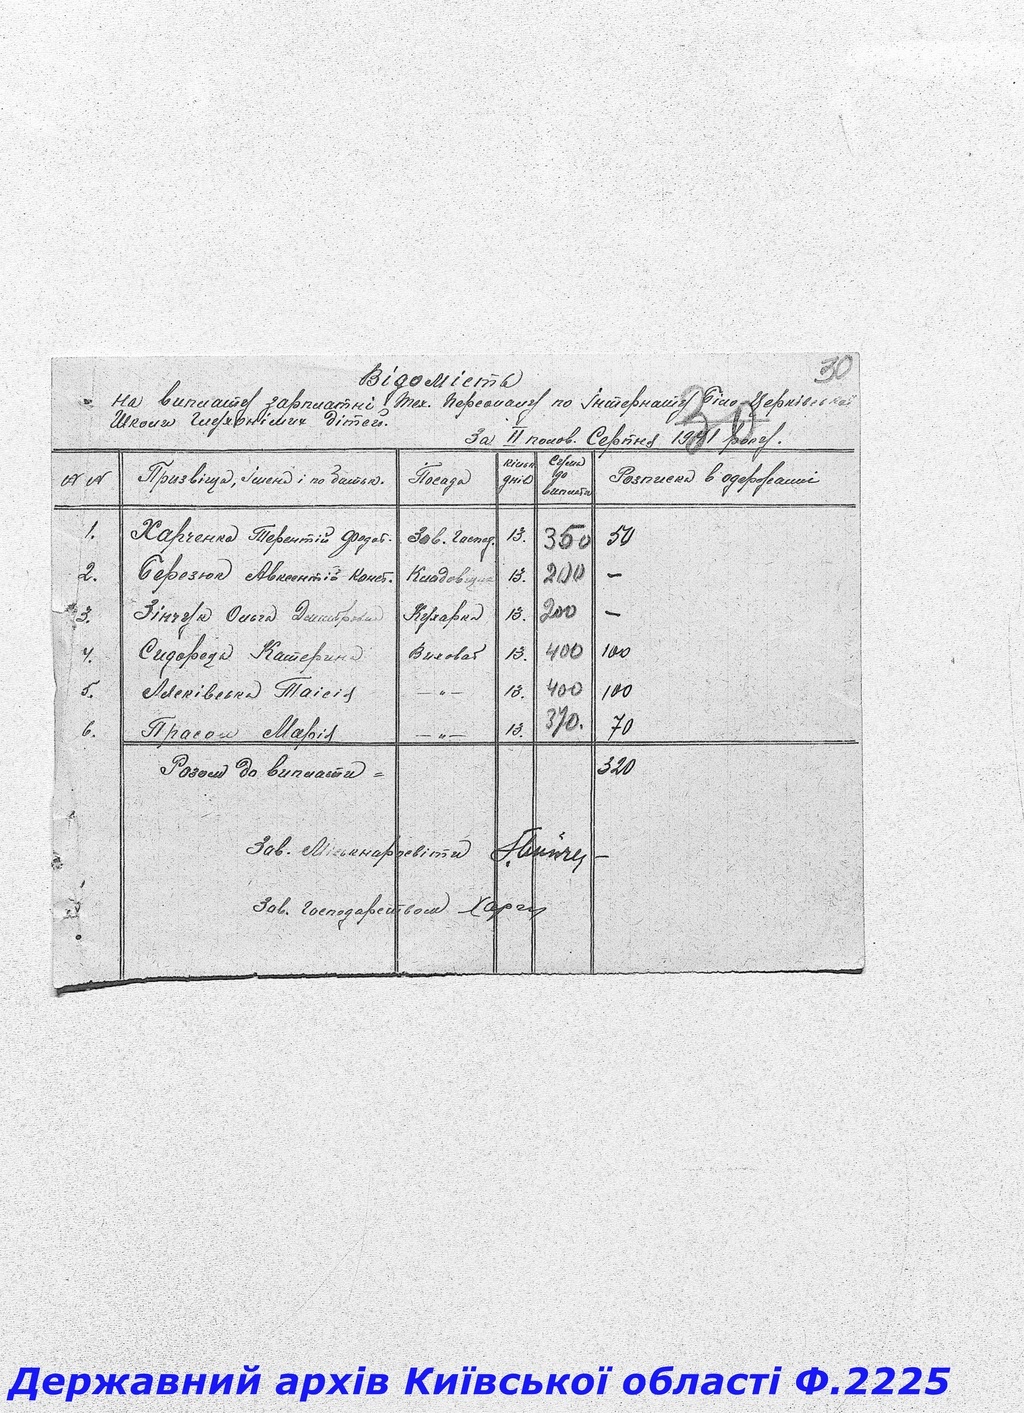 30
Відомість
на виплату зарплатні Тех. Персоналу по Інтернату Біло Церківської
Школи Глухонімих Дітей.
30
За ІІ полов. Серпня 1941 року.
№ № Призвіща, імена і по батьк. Посада кільк днів Сума до виплати Розписка в одержанні
1. Харченко Терентій Федот. Зав. Госпед. 13. 350 50
2. Березюк Авксентій Конст. Кладовщик 13. 200 —
3. Зінчук Ольга Дмитровна Кухарка 13. 200 —
4. Сидоруда Катерина Виховат 13. 400 100
5. Лясківська Таісія —„— 13. 400 100
6. Прасол Марія —„— 13. 370. 70
Разом до виплати = 320
Зав. Міськнаросвіти
Зав. Господарством Харч
Державний архів Київської області Ф.2225